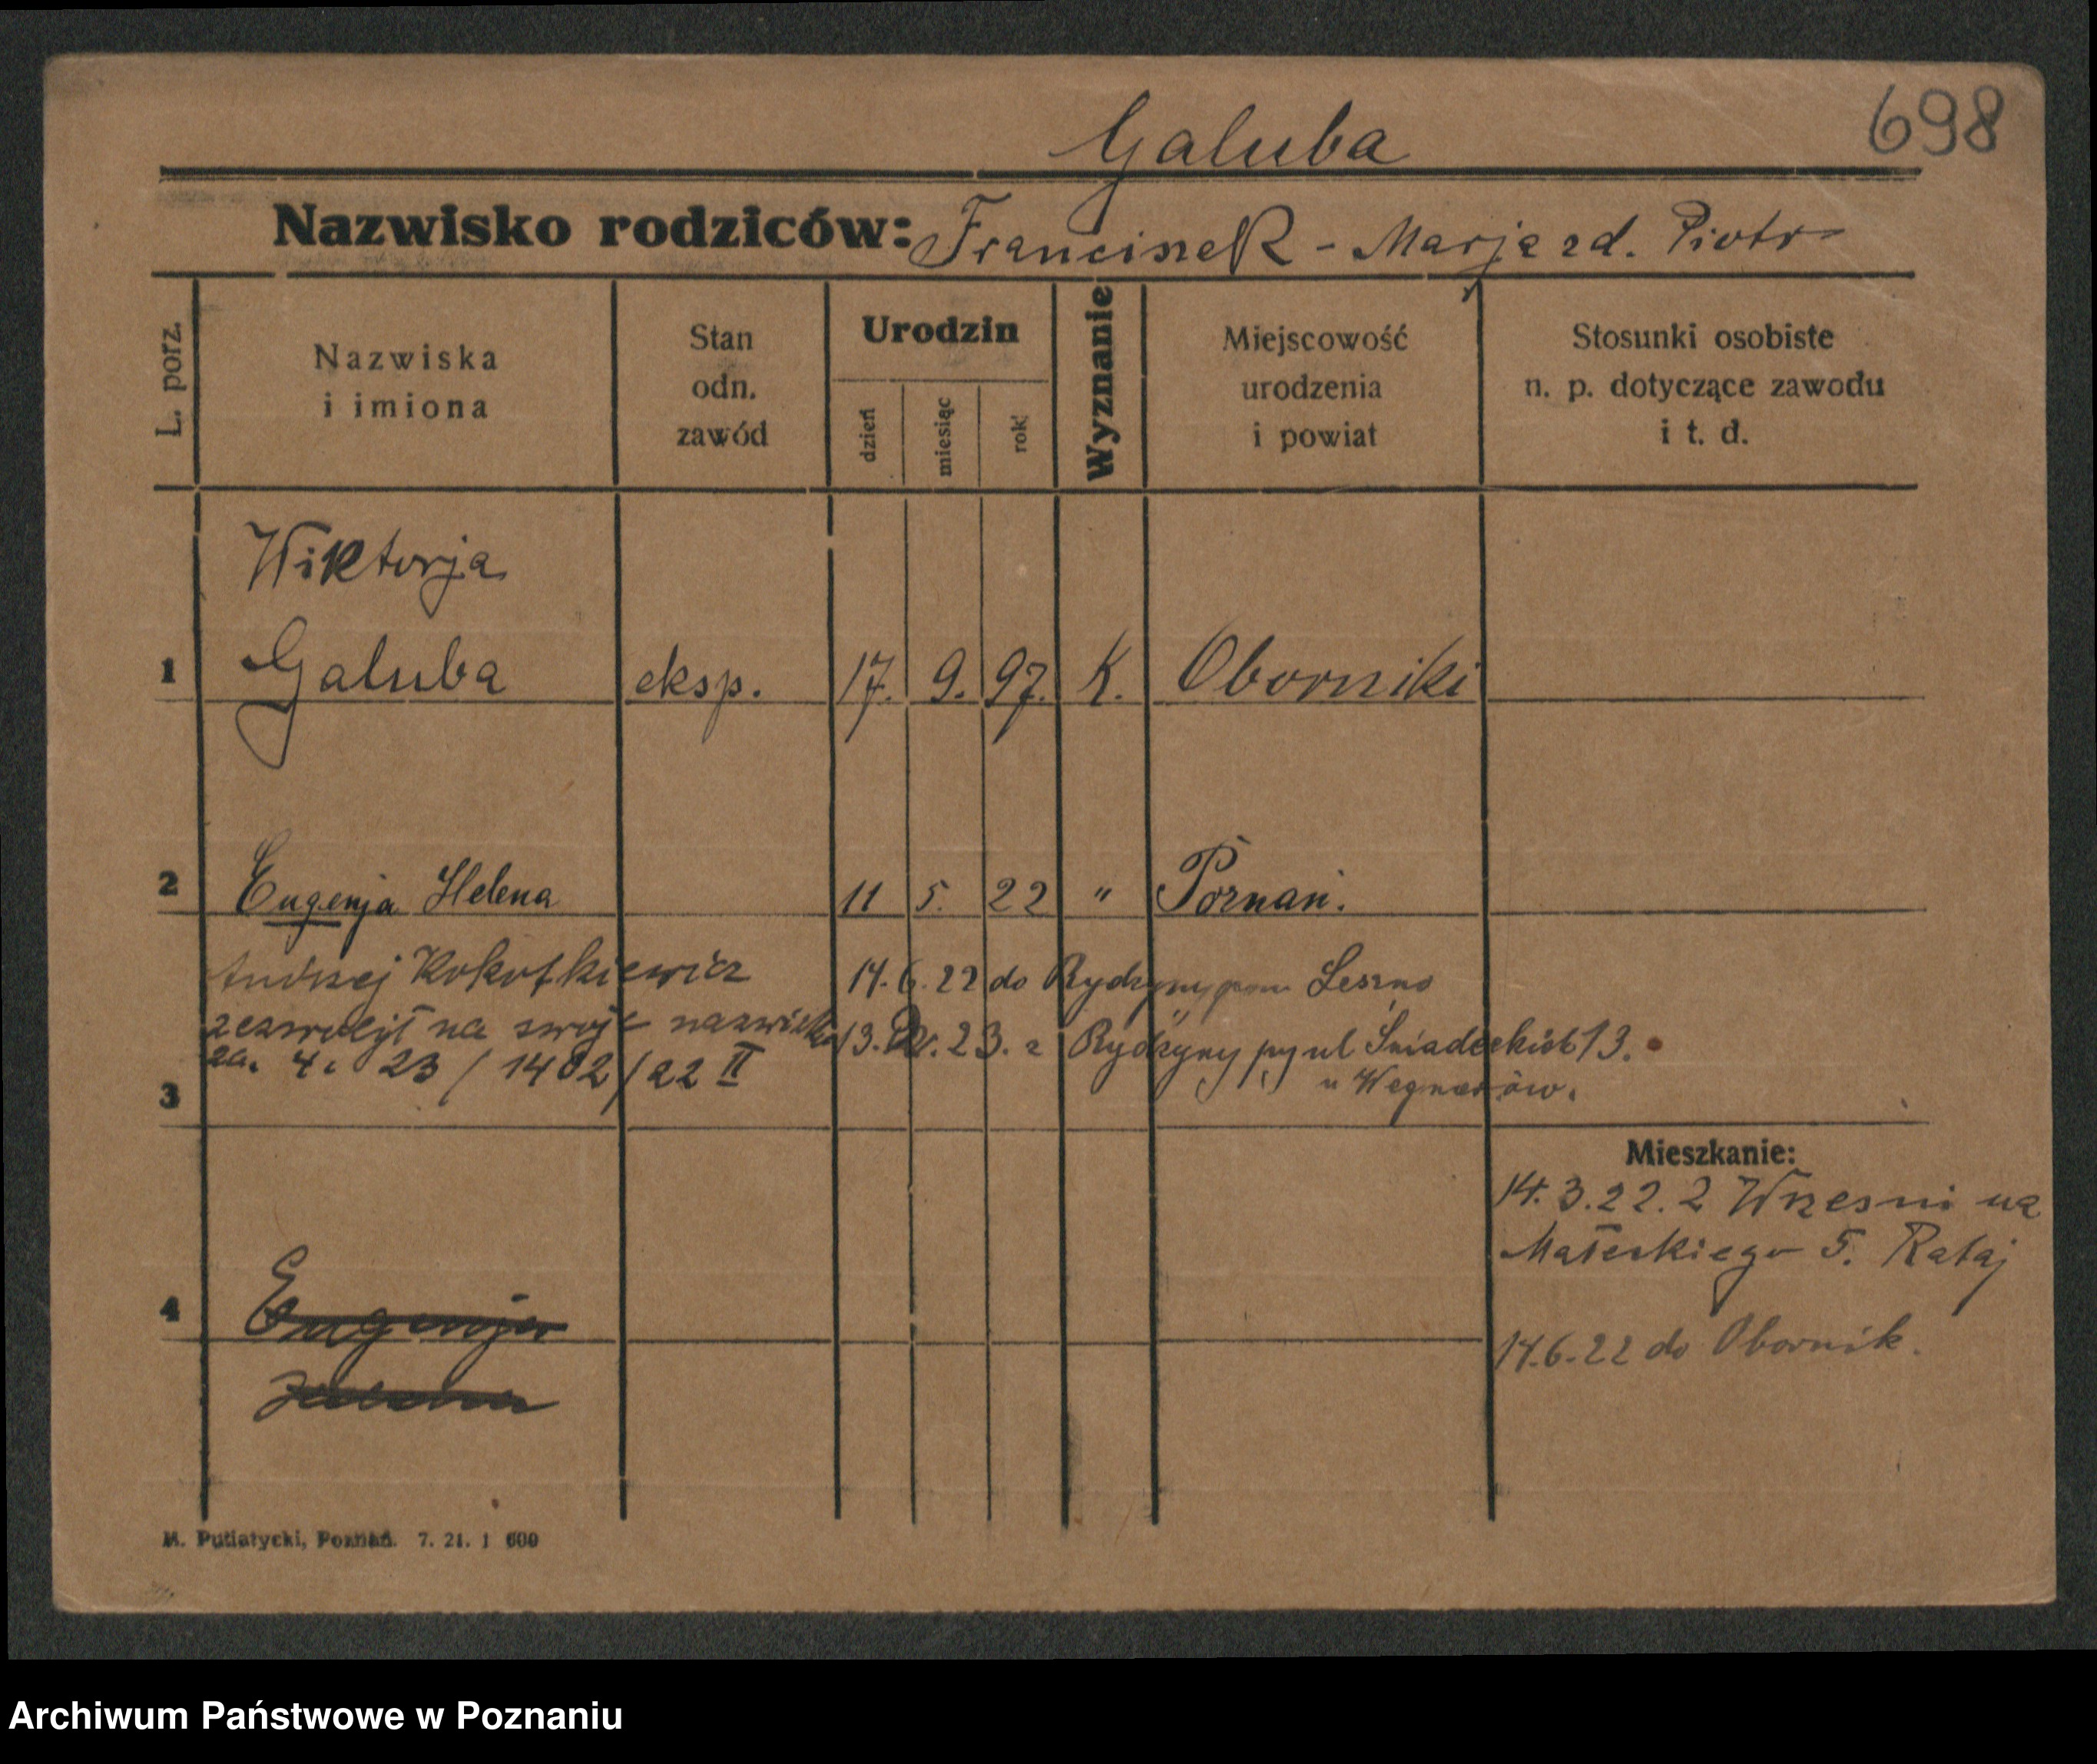 698
Galuba
Nazwisko rodziców: Franciszek - Marja zd. Piotr
L. porz.
Nazwiska
i imiona
Stan
odn.
zawód
Urodzin
dzień
miesiąc
rok
Wyznanie
Miejscowość
urodzenia
i powiat
Stosunki osobiste
n. p. dotyczące zawodu
i t. d.
Wiktorja
1 Galuba eksp. 17. 9. 97. K. Oborniki
2 Eugenja Helena 11 5. 22 " Poznań.
Andrzej Kokotkiewicz 14.6.22 do Rydzyny pow Leszno
zezwolył na swoje nazwisko 13. 23. z Rydzyny ul Śniadeckich 13.
za. 4. 23 / 1402/22 II u Wegnerów.
3
Mieszkanie:
14.3.22. z Wrzesni na
Małeckiego 5. Rataj
4 Eugenja
14.6.22 do Obornik.
M. Putiatycki, Poznań. 7. 21. 1 600
Archiwum Państwowe w Poznaniu